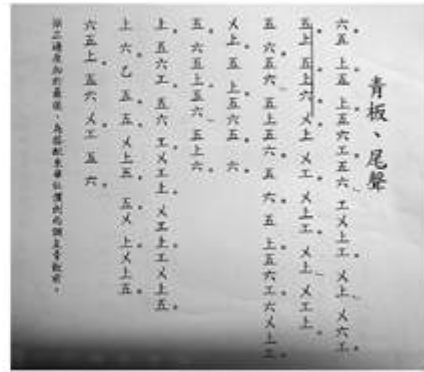 青板、尾聲
六五 上五 上五六工五六 工乂上工 乂上 乂六工
五上 五上六 乂上 乂工 乂上工 乂上 乂工上
五 六五六 五上五六 五 六 五 上五六工六乂上工
乂上 五 上五六五 六
五 六五上五六 五上六
上 五六工 五六 工乂工上 乂工上工乂上五
上 六 乙 五 五 乂上五 五乂 上乂上五
六五上 五六 乂工 五 六